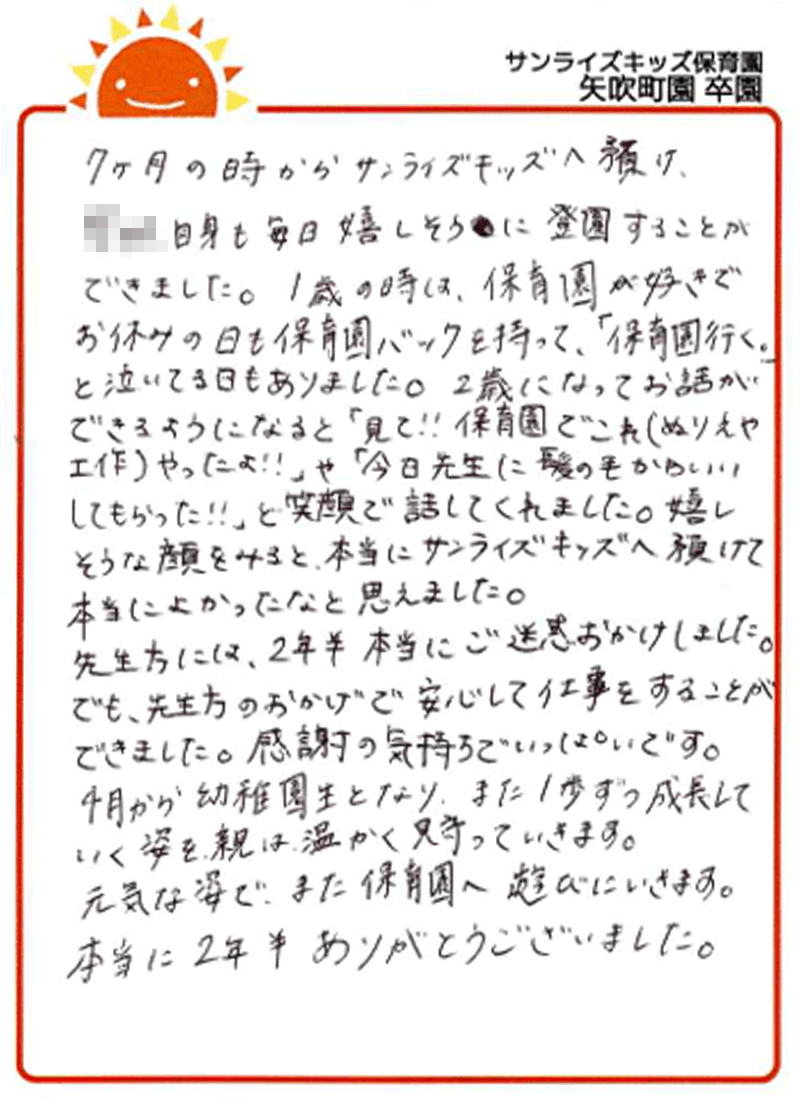 サンライズキッズ保育園
矢吹町園 卒園
7ヶ月の時からサンライズキッズへ預け、
自身も毎日嬉しそうに登園することが
できました。1歳の時は、保育園が好きで
お休みの日も保育園バックを持って、「保育園行く。」
と泣いてる日もありました。2歳になってお話が
できるようになると「見て!!保育園でこれ(ぬりえや
工作)やったよ!!」や「今日先生に髪の毛かわいい
してもらった!!」と笑顔で話してくれました。嬉し
そうな顔をみると、本当にサンライズキッズへ預けて
本当によかったなと思えました。
先生方には、2年半本当にご迷惑おかけしました。
でも、先生方のおかげで安心して仕事をすることが
できました。感謝の気持ちでいっぱいです。
4月から幼稚園生となり、また1歩ずつ成長して
いく姿を、親は、温かく見守っていきます。
元気な姿で、また保育園へ遊びにいきます。
本当に2年半ありがとうございました。